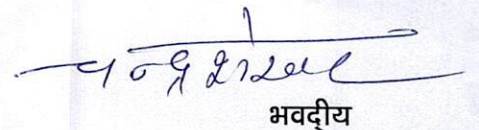 चन्द्रशेखर
भवदीय